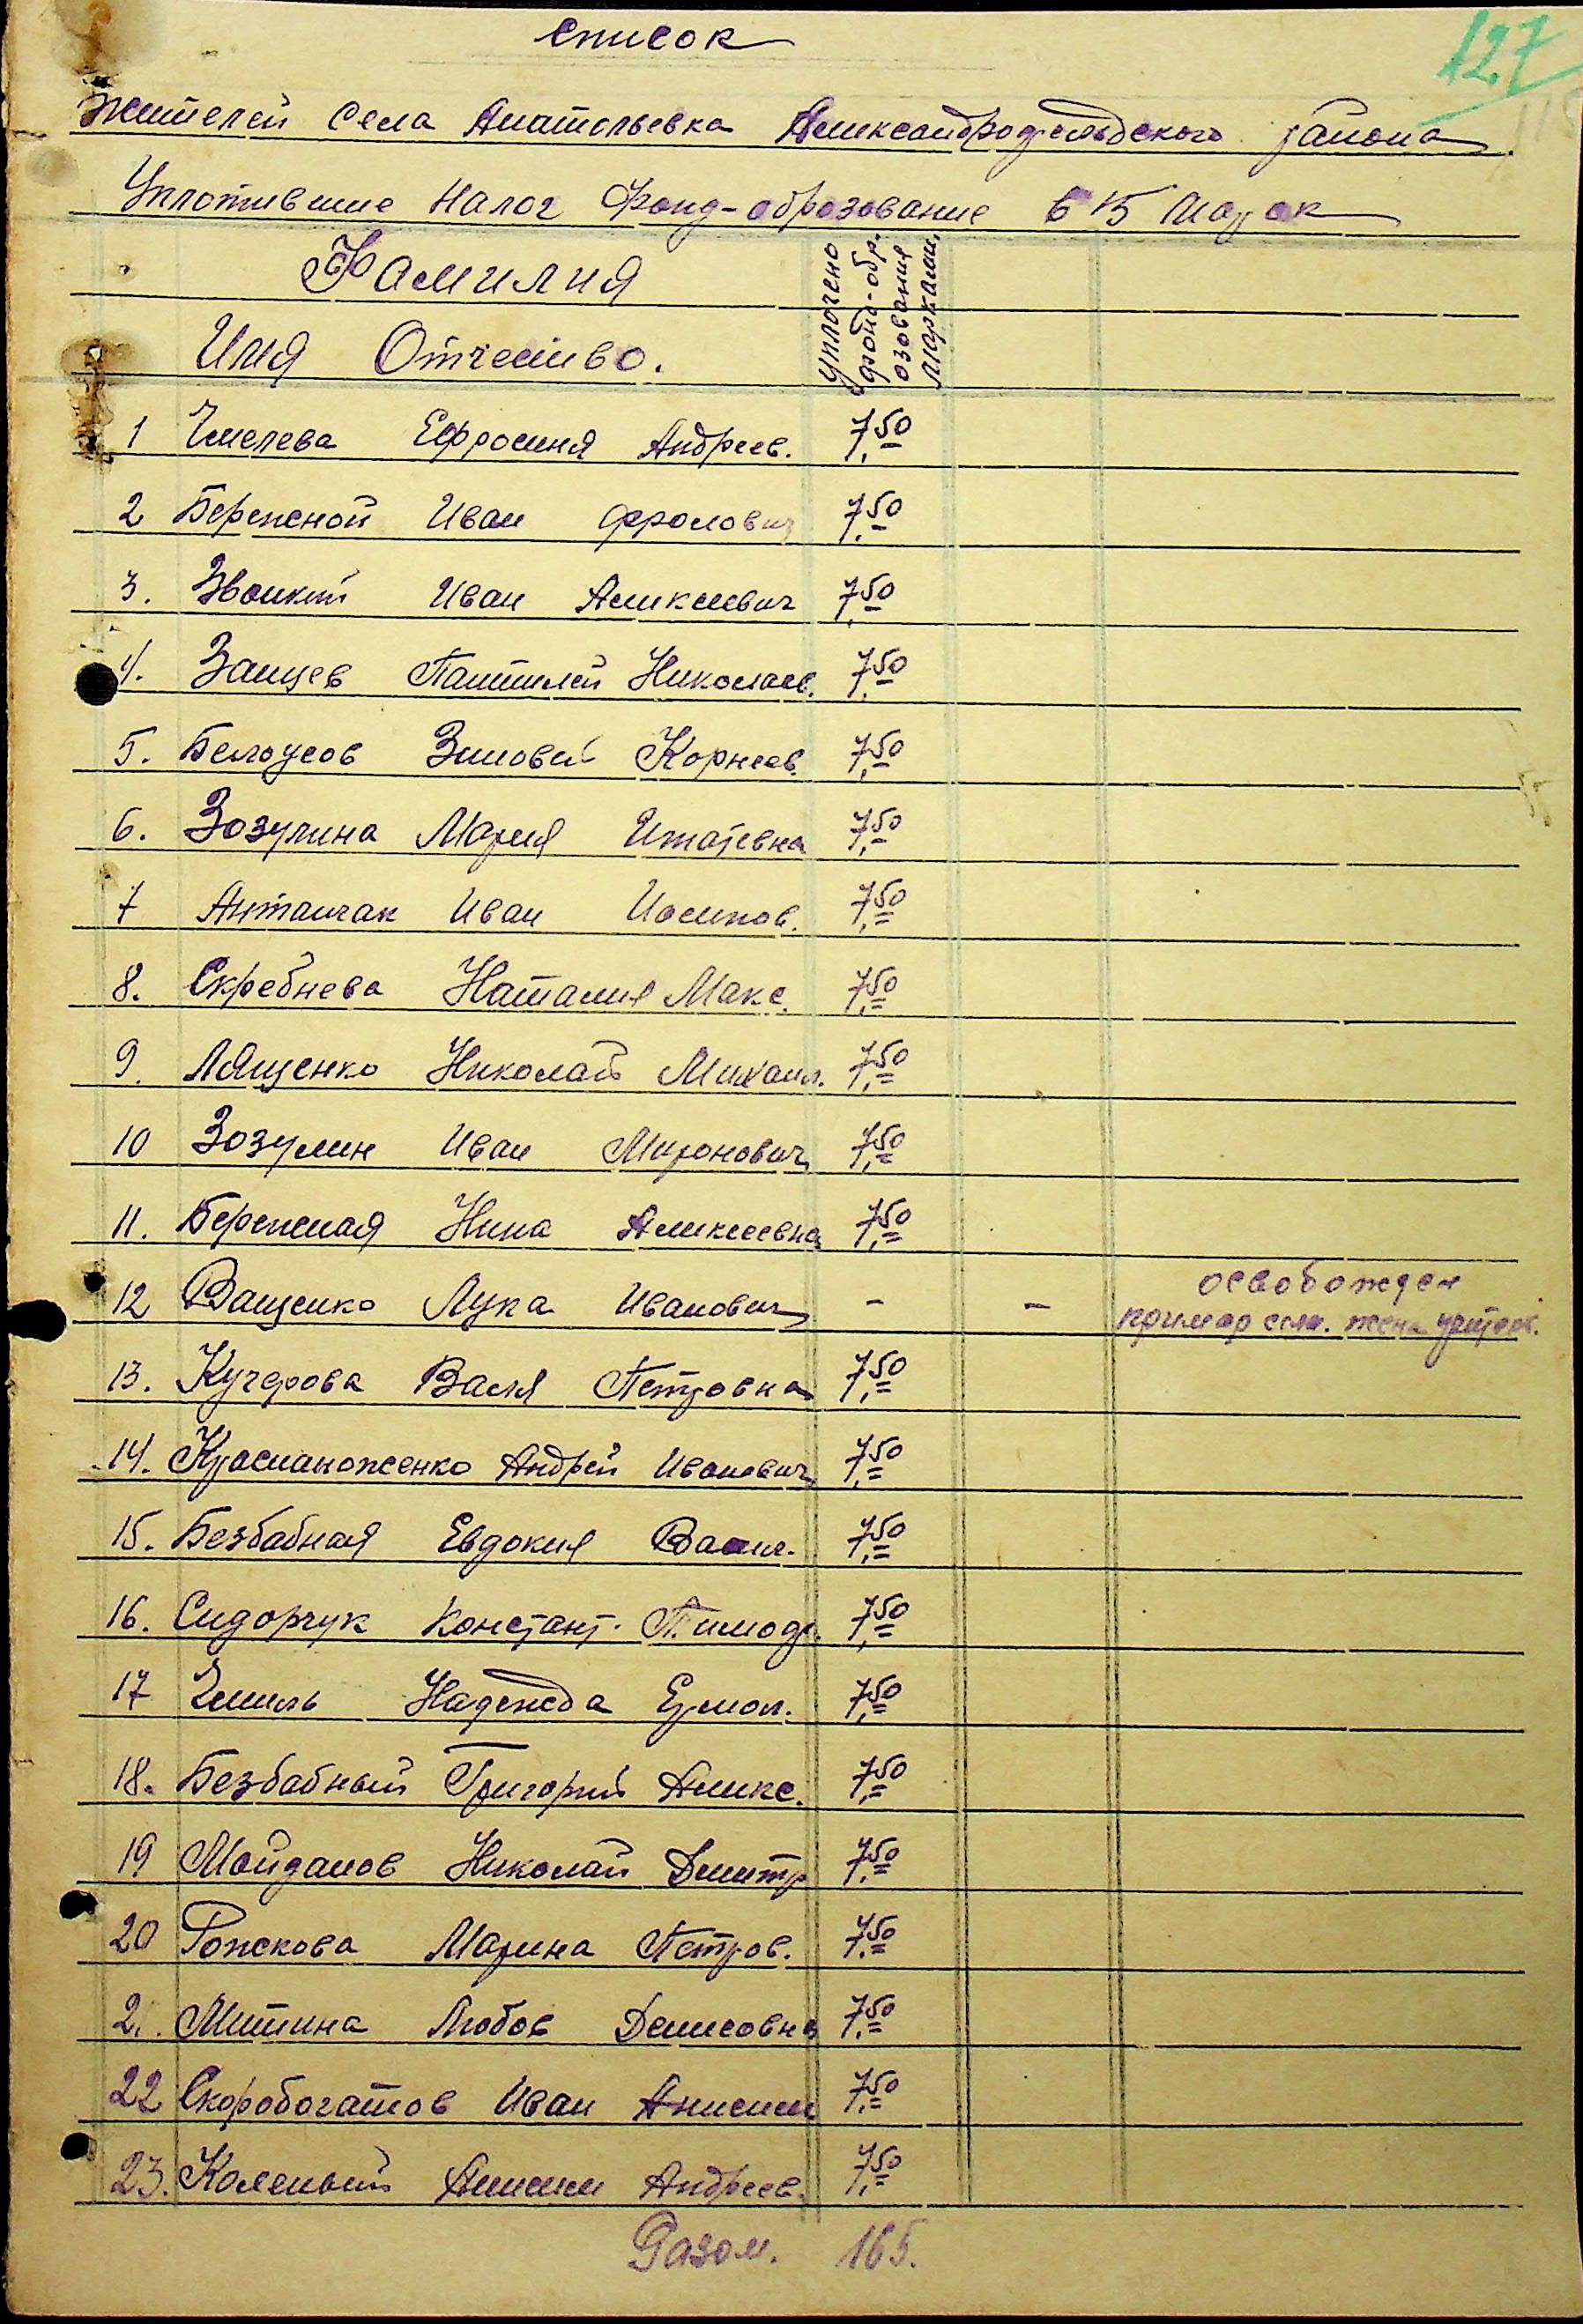 список
127
Жителей села Анатольевка Александрофельдского района
Уплотившие Налог Фонд-оброзование 6 15 Марок
Фамилия
Имя Отчество.
Уплочено
фонд-обр.
озования
Марками,
1 Чмелева Ефросиня Андреев. 7,50
2 Бережной Иван Фролович 7,50
3. Звонкий Иван Алексеевич 7,50
4. Зайцев Пантилей Николаев. 7,50
5. Белоусов Зиновей Корнеев. 7,50
6. Зозулина Мария Игнатевна 7,50
7 Антанчак Иван Иосипов. 7,50
8. Скребнева Наталия Макс. 7,50
9. Лященко Николай Михаил. 7,50
10 Зозулин Иван Миронович 7,50
11. Бережная Нина Алексеевна 7,50
12 Ващенко Лука Иванович - - освобожден
примар села. жена
13. Кучерова Валя Петровна 7,50
14. Красножоженко Андрей Иванович 7,50
15. Безбабная Евдокия Васил. 7,50
16. Сидорчук Констант. Тимоф. 7,50
17 Чмиль Надежда Ермол. 7,50
18. Безбабный Григорий Алекс. 7,50
19 Мойданов Николай Дмитр 7,50
20 Рожкова Марина Петров. 7,50
21. Митина Любов Денисовна 7,50
22 Скоробогатов Иван Анисим 7,50
23. Коленый Анисим Андреев. 7,50
Разом. 165.